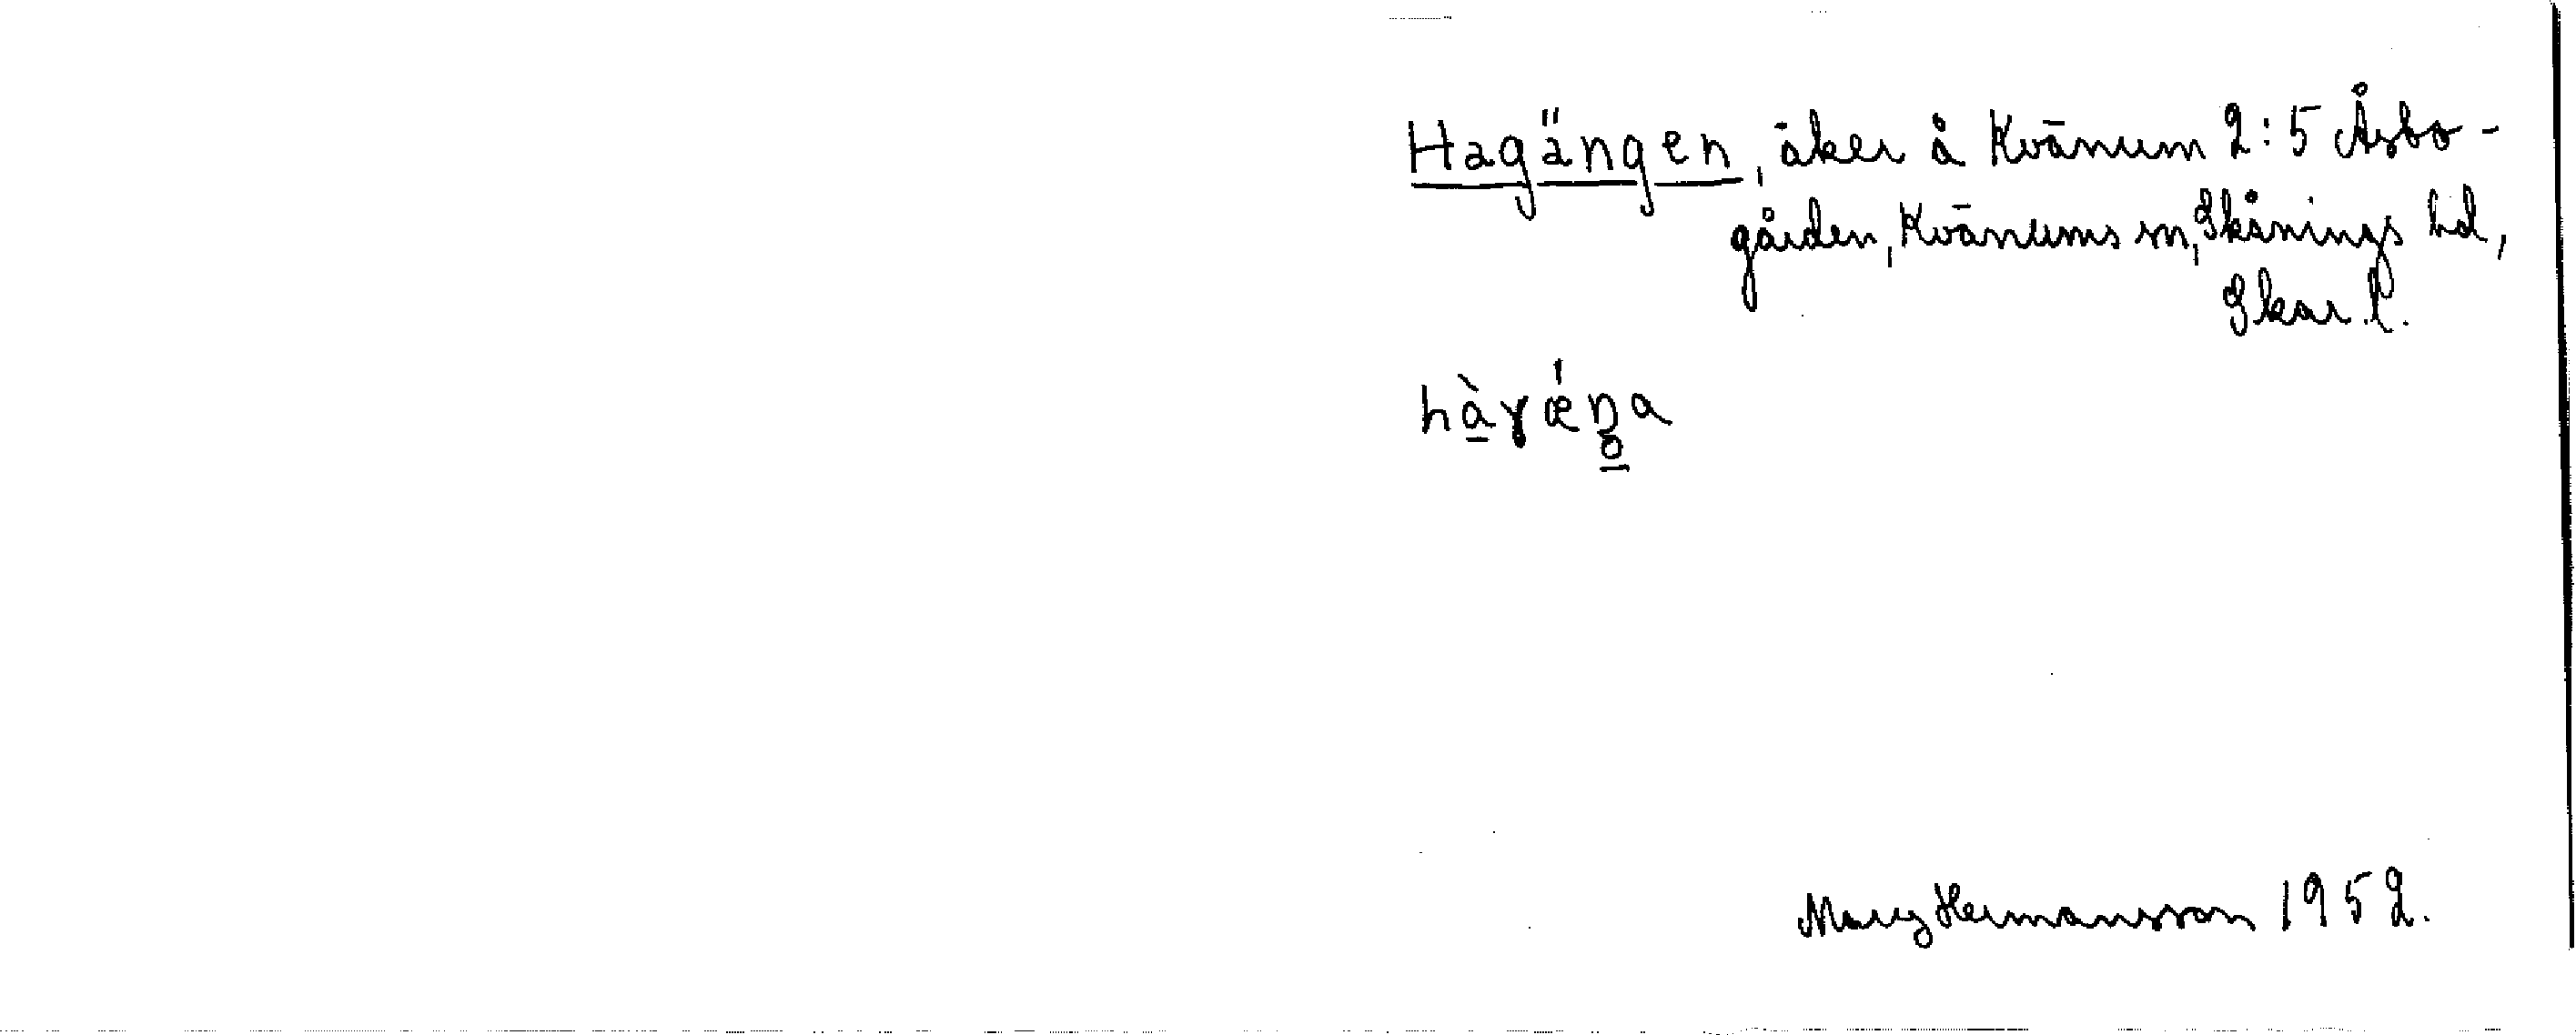 Hagängen, åker å Kvänum 2:5 Åsbo-
gården, Kvänums sn, Skånings hd,
Skar. l.
Mary Hermansson 1952.